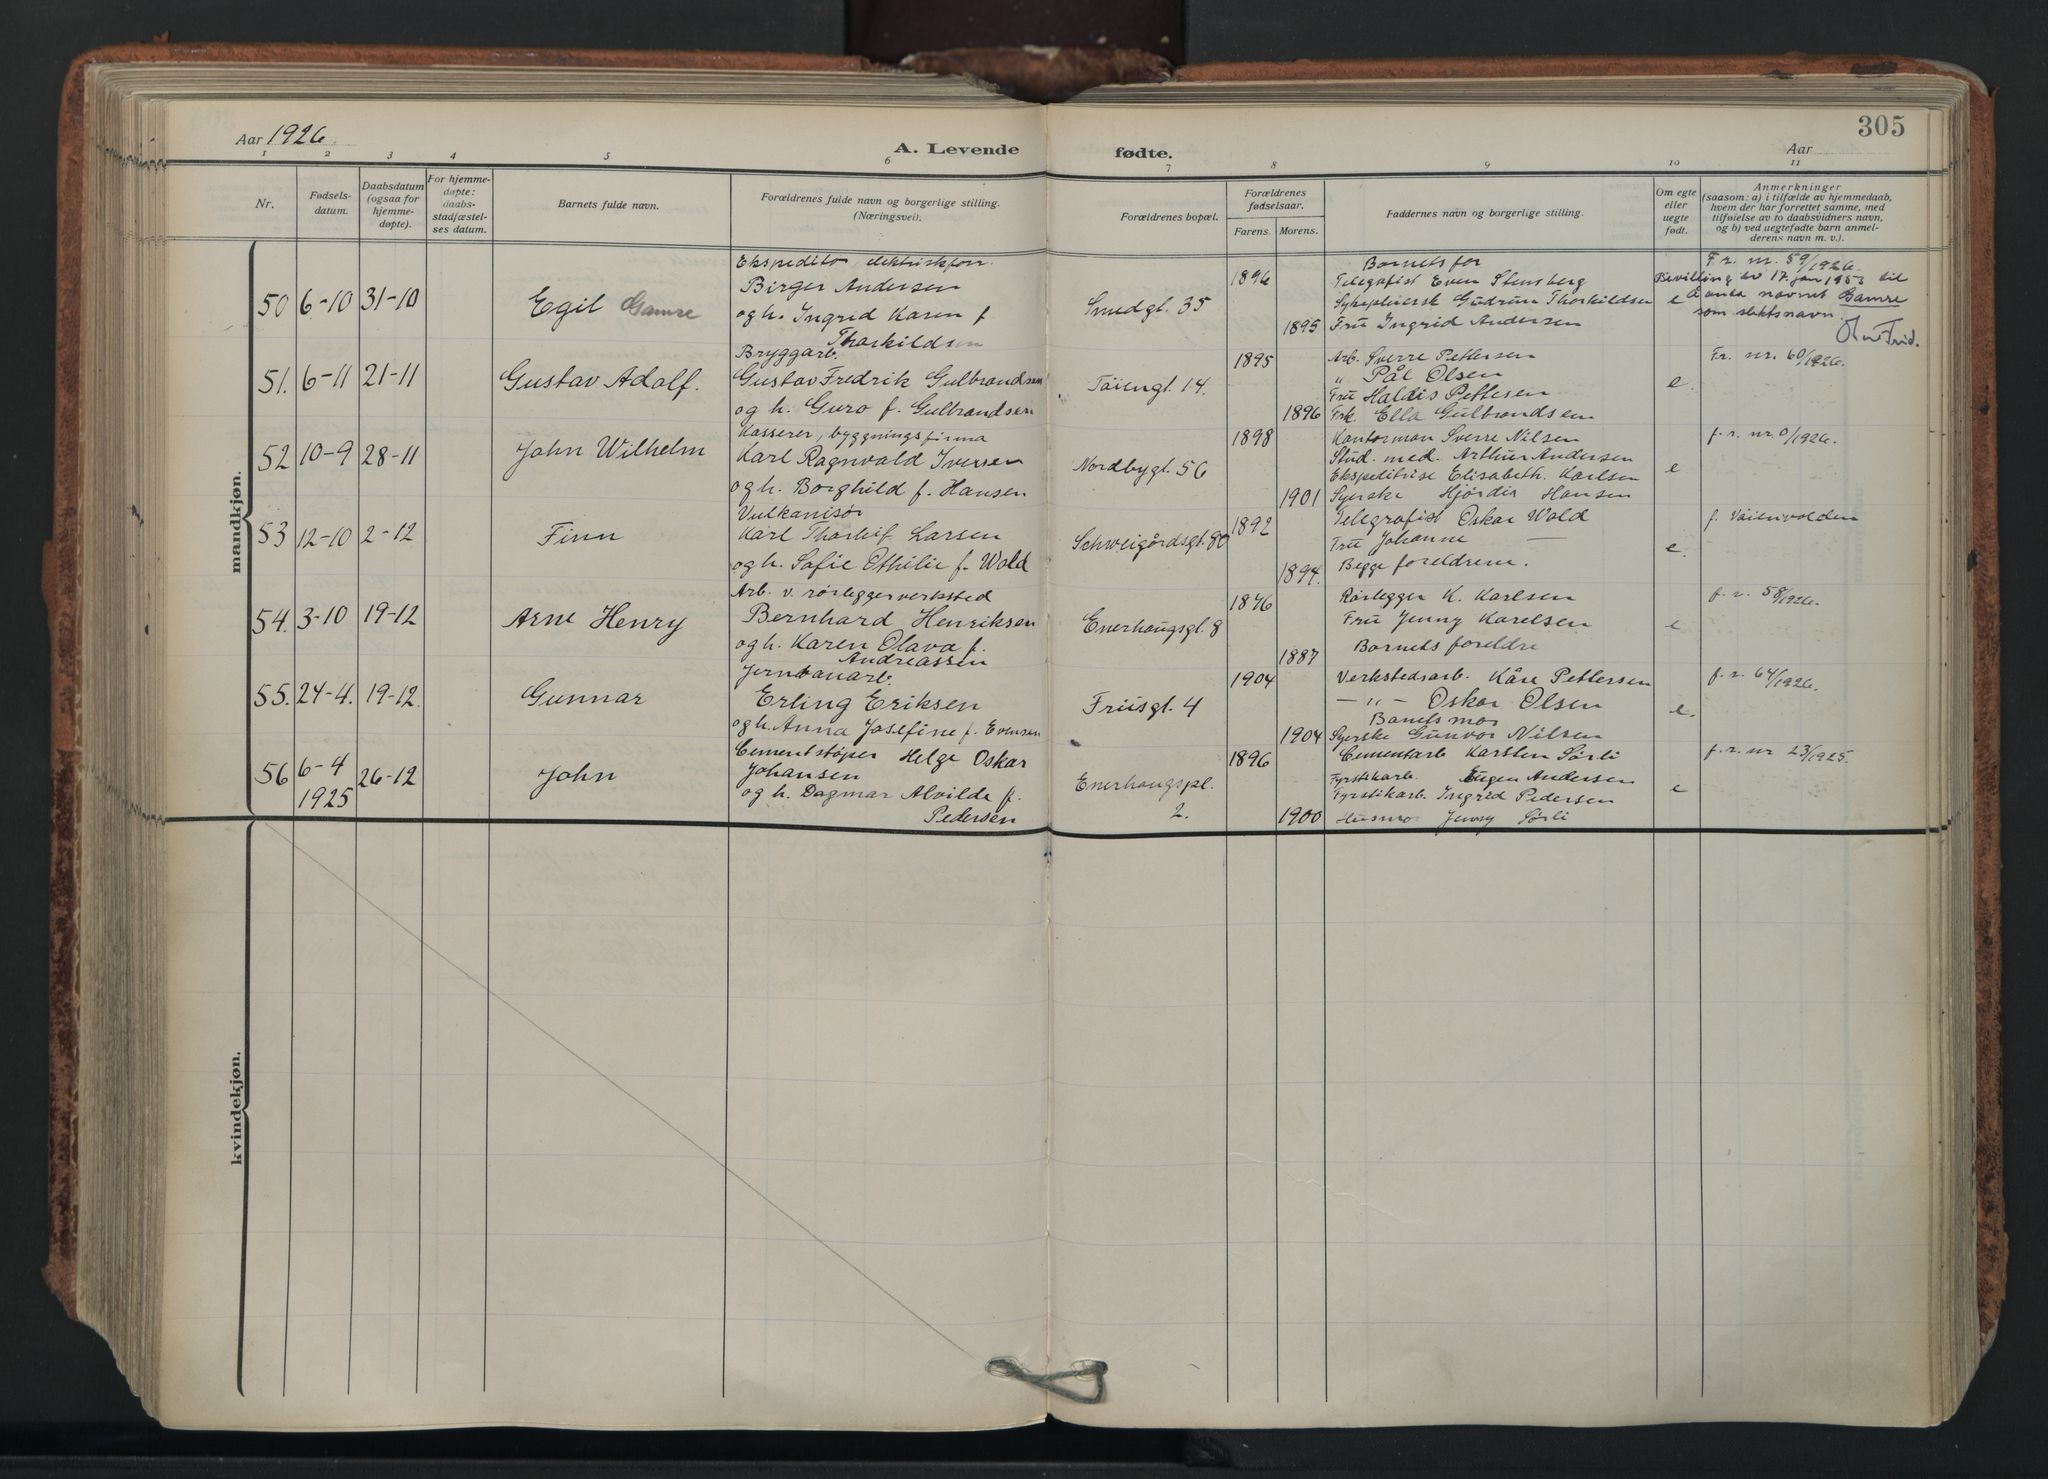 305
Aar 1926
A. Levende fødte.
Aar
1 2 3 4 5 6 7 8 9 10 11
Nr.
Fødsels-
datum.
Daabsdatum
(ogsaa for
hjemme-
døpte).
For hjemme-
døpte:
daabs-
stadfæstel-
ses datum.
Barnets fulde navn.
Forældrenes fulde navn og borgerlige stilling.
(Næringsvei).
Forældrenes bopæl.
Forældrenes
fødselsaar.
Farens. Morens.
Faddernes navn og borgerlige stilling.
Om egte
eller
uegte
født.
Anmerkninger
(saasom: a) i tilfælde av hjemmedaab,
hvem der har forrettet samme, med
tilføielse av to daabsvidners navn,
og b) ved uegtefødte barn anmel-
derens navn m. v.).
mandkjøn.
50 6-10 31-10 Egil Gamre
Ekspeditør elektriskforr.
Birger Andersen
og h. Ingrid Karen f.
Thorkildsen
Smedgt. 35
1896
1895
Barnets far
Telegrafist Even Stensberg
Sykepleiersk Gudrun Thorkildsen
Fru Ingrid Andersen
e
F. r. nr. 59/1926.
Bevilling av 17 jan 1953 til
å anta navnet Gamre
som slektsnavn.
51. 6-11 21-11 Gustav Adolf.
Bryggarb.
Gustav Fredrik Gulbrandsen
og h. Guro f. Gulbrandsen
Tøiengt. 14.
1895
1896
Arb. Sverre Pettersen
„ Pål Olsen
Fru Haldis Pettesen
Frk. Ella Gulbrandsen
e.
Fr. nr. 60/1926.
52 10-9 28-11 John Wilhelm
Kasserer, byggningsfirma
Karl Ragnvald Iversen
og h. Borghild f. Hansen
Nordbygt. 56
1898
1901
Kontorman Sverre Nilsen
Stud. med. Arthur Andersen
Ekspeditrise Elisabeth Karlsen
Syerske Hjørdis Hansen
e
f. r. nr. 0/1926.
53 12-10 2-12 Finn
Vulkanisør
Karl Thorleif Larsen
og h. Sofie Othilie f. Wold
Schweigårdsgt. 80
1892
1894.
Telegrafist Oskar Wold
Fru Johanne —
Begge foreldrene.
e.
f. Våienvolden
54. 3-10 19-12 Arne Henry
Arb. v. rørleggerverksted
Bernhard Henriksen
og h. Karen Olava f.
Andreassen
Enerhaugsgt. 8
1876
1887
Rørlegger K. Karlsen
Fru Jenny Karelsen
Barnets foreldre
e
f. r. 58/1926.
55. 24-4. 19-12. Gunnar
Jernbanarb.
Erling Eriksen
og h. Anna Josefine f. Evensen
Friisgt. 4
1904
1904
Verkstedsarb. Kåre Pettersen
— „ — Oskar Olsen
Barnets mor
Syerske Gunvor Nilsen
e.
f. r. 64/1926.
56 6-4
1925
26-12 John
Cementstøper Helge Oskar
Johansen
og h. Dagmar Alvilde f.
Pedersen
Enerhaugspl.
2.
1896
1900
Cementarb Karsten Sørli
Fyrstikarb. Eugen Andersen
Fyrstikarb. Ingrid Pedersen
Husmo Jenny Sørli
e
f. r. nr 23/1925.
kvindekjøn.